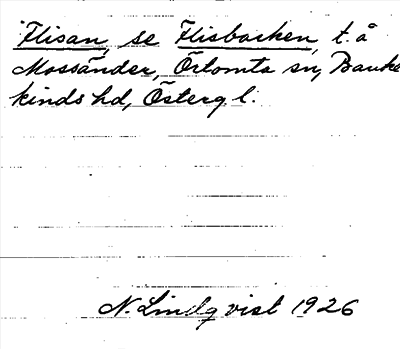 Flisan, se Flisbacken, t. å
Mossänder, Örtomta sn, Banke
kinds hd, Österg l.
N. Lindqvist 1926